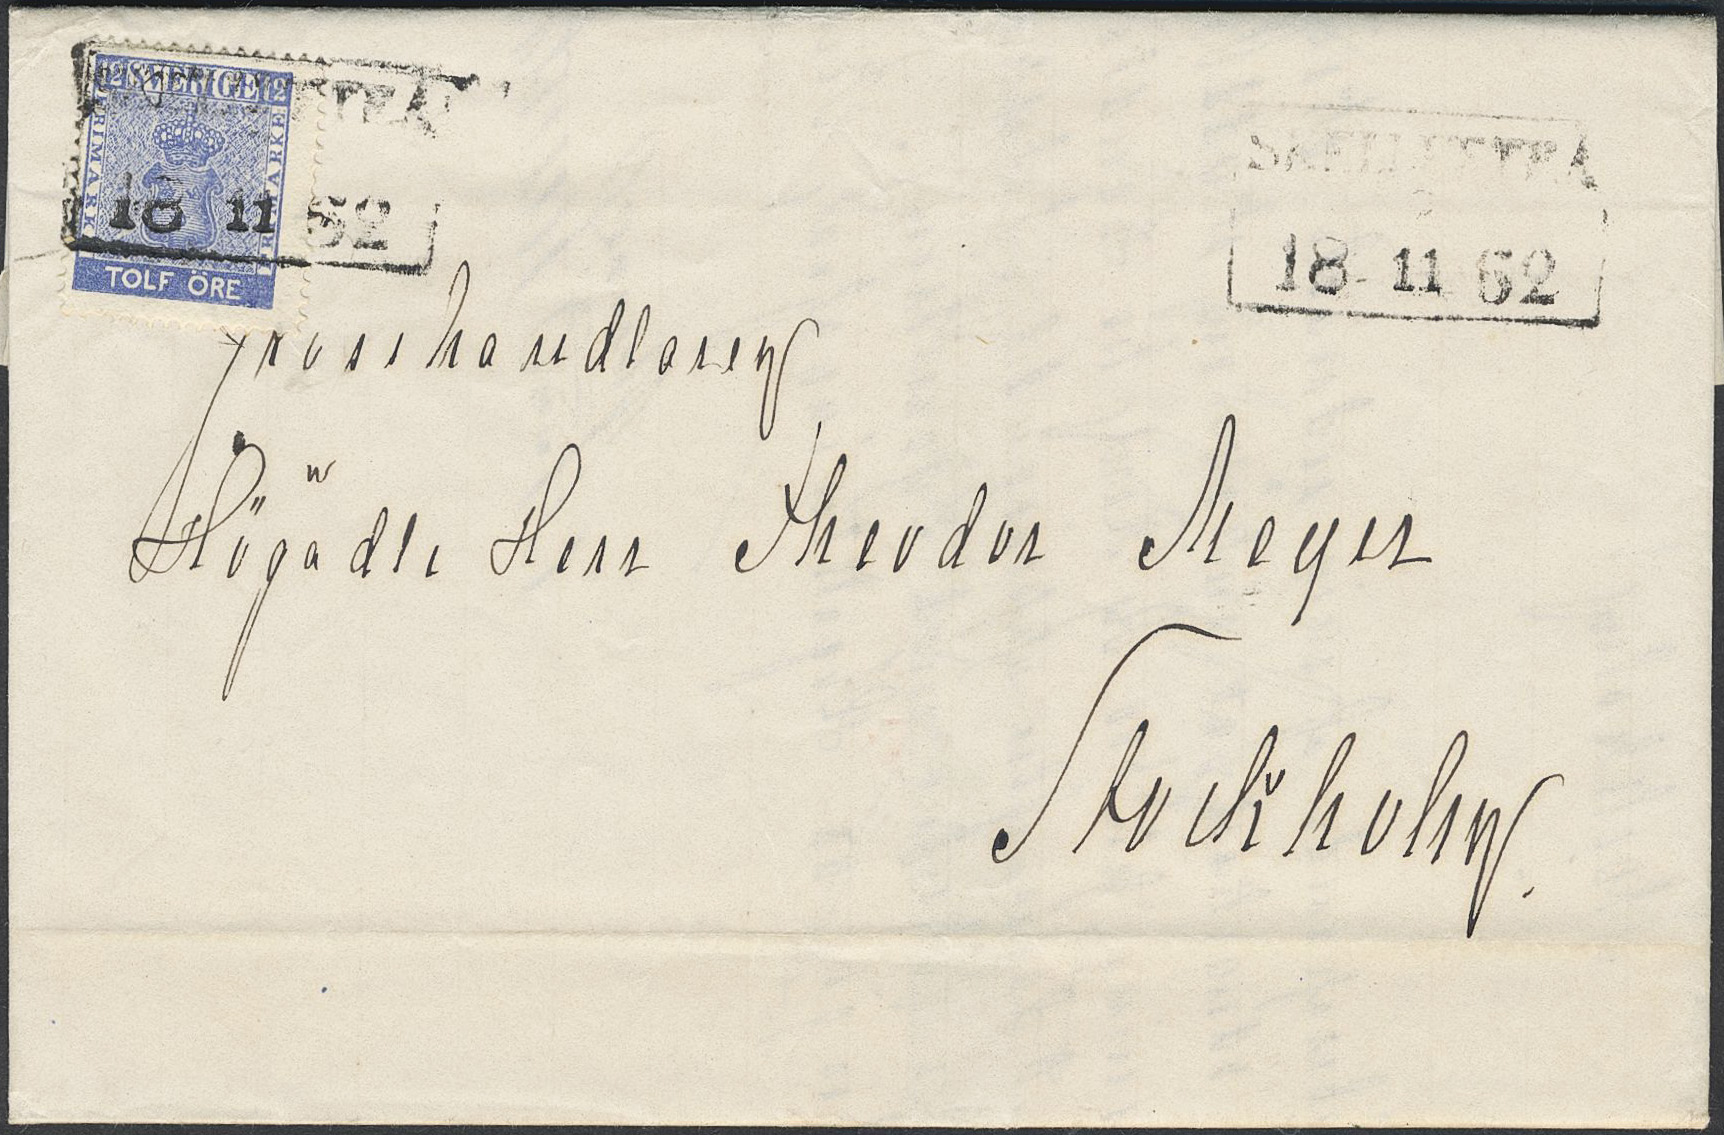 12 SVERIGE 12
FRIMÄRKE
FRIMÄRKE
TOLF ÖRE
18 11 62
SKELLEFTEÅ
18 11 62
Grosshandlaren
Högädle Herr Theodor Meyer
Stockholm.